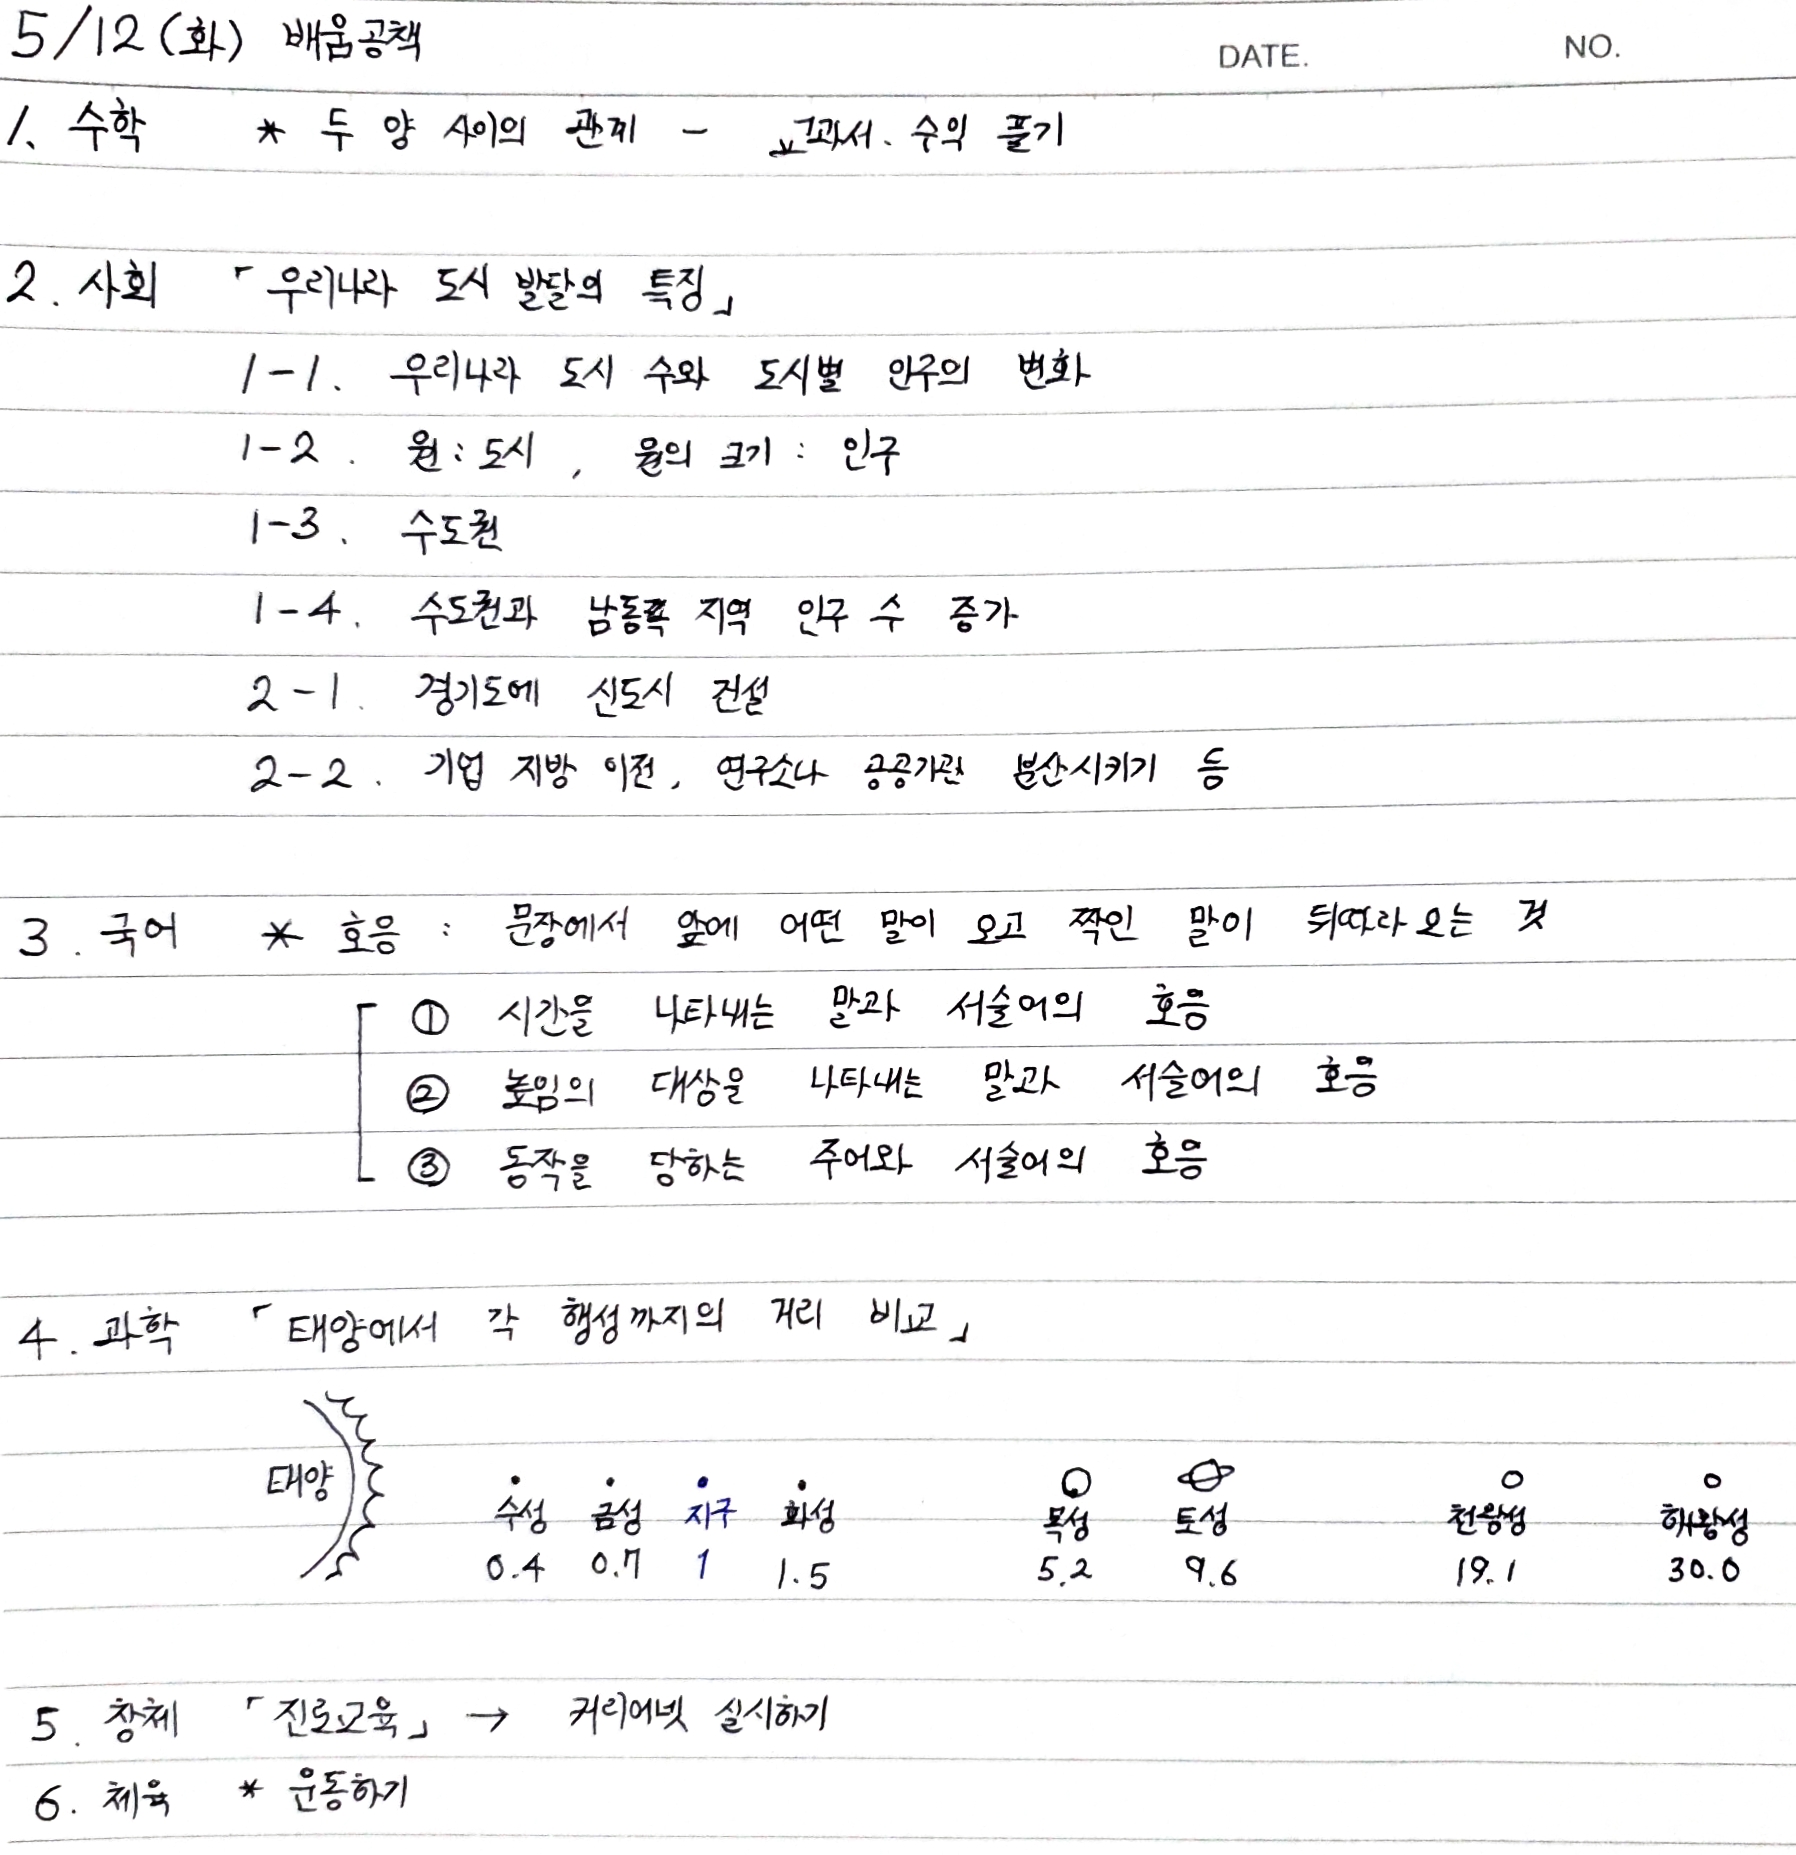 5/12(화) 배움공책
DATE. NO.
1. 수학 * 두 양 사이의 관계 - 교과서. 수익 풀기
2. 사회 「우리나라 도시 발달의 특징」
1-1. 우리나라 도시 수와 도시별 인구의 변화
1-2. 원 : 도시, 원의 크기 : 인구
1-3. 수도권
1-4. 수도권과 남동쪽 지역 인구 수 증가
2-1. 경기도에 신도시 건설
2-2. 기업 지방 이전, 연구소나 공공기관 분산시키기 등
3. 국어 * 호응 : 문장에서 앞에 어떤 말이 오고 짝인 말이 뒤따라 오는 것
① 시간을 나타내는 말과 서술어의 호응
② 높임의 대상을 나타내는 말과 서술어의 호응
③ 동작을 당하는 주어와 서술어의 호응
4. 과학 「태양에서 각 행성까지의 거리 비교」
태양 수성 금성 지구 화성 목성 토성 천왕성 해왕성
0.4 0.7 1 1.5 5.2 9.6 19.1 30.0
5. 창체 「진로교육」 → 커리어넷 실시하기
6. 체육 * 운동하기